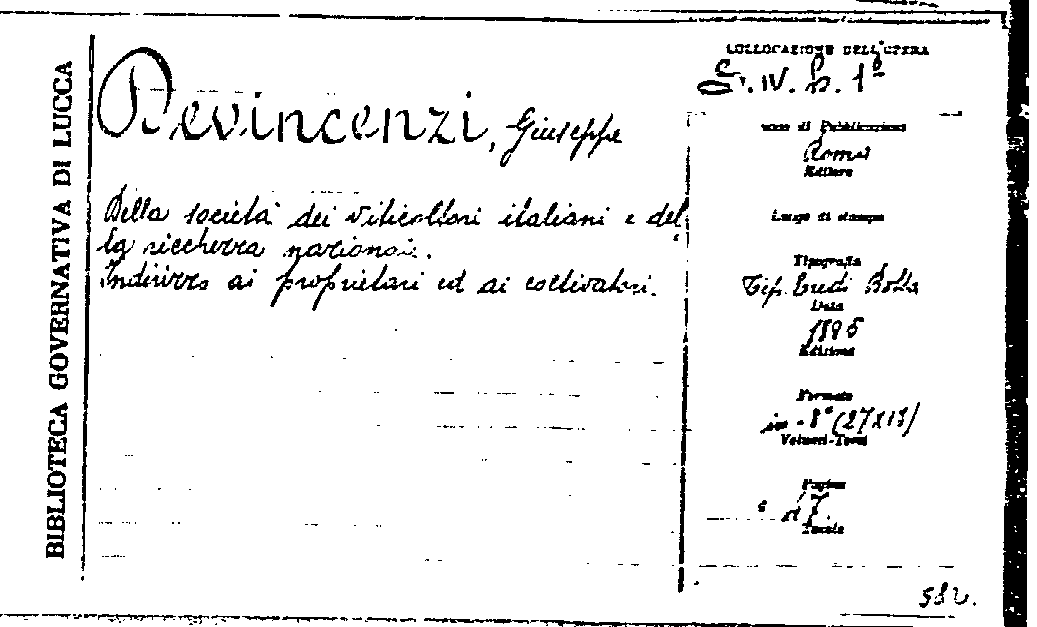 BIBLIOTECA GOVERNATIVA DI LUCCA
Devincenzi, Giuseppe
Della società dei viticoltori italiani e del
la ricchezza nazionale.
Indirizzo ai proprietari ed ai coltivatori.
COLLOCAZIONE DELL'OPERA
IV. 1
di Pubblicazione
Roma
Editore
Luogo di stampa
Tipografia
Tip. Eredi Botta
Data
Edizione
Formato
in-8° (27X18)
Volumi-Tomi
Pagine
17.
Tavole